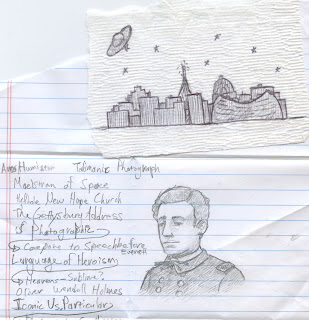 Amos Humiston Talismanic Photograph
Maelstrom of Space
Hellhole New Hope Church
The Gettysburg Address
is Photographic
Compare to Speech before
Everett
Language of Heroism
Heavens-Sublime?
Oliver Wendell Holmes
Iconic Vs. Particular